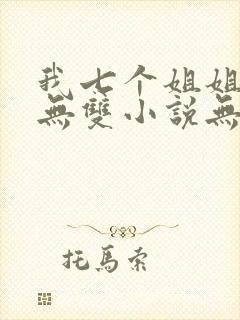 我七个姐姐
無雙小說無
托馬索